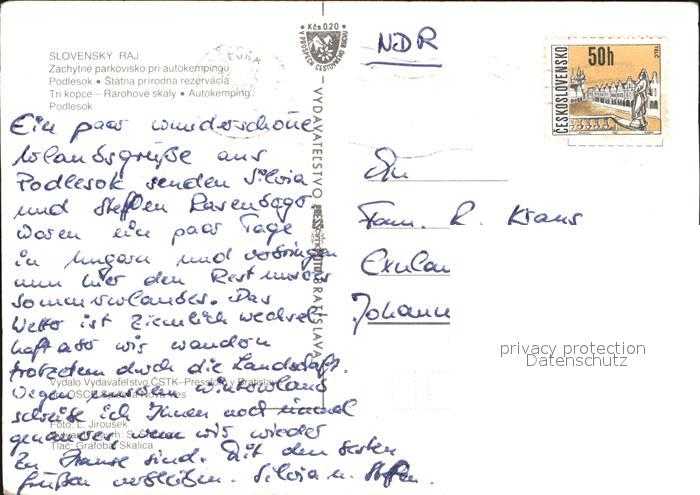 SLOVENSKÝ RAJ
Záchytné parkovisko pri autokempingu
Podlesok • Štátna prírodná rezervácia
Tri kopce – Rarohove skaly • Autokemping
Podlesok
Kčs 0,20
VYDAVATEĽSTVO PRESSFOTO BRATISLAVA
ČESKOSLOVENSKO
50h
TELČ
NDR
Ein paar wunderschöne
Urlaubsgrüße aus
Podlesok senden Silvia
und Steffen
Waren ein paar Tage
in Ungarn und verbringen
nun hier den Rest unseres
Sommerurlaubes. Das
Wetter ist ziemlich wechsel-
haft aber wir wandern
trotzdem durch die Landschaft.
Wegen unserem Winterurlaub
schreibe ich Ihnen noch einmal
genauer wenn wir wieder
zu Hause sind. Mit den besten
Grüßen verbleiben. Silvia u. Steffen.
An
Fam. R. Kraus
Johann
Vydalo Vydavateľstvo ČSTK–Pressfoto v Bratislave
Foto: L. Jiroušek
Tlač: Grafobal Skalica
privacy protection
Datenschutz